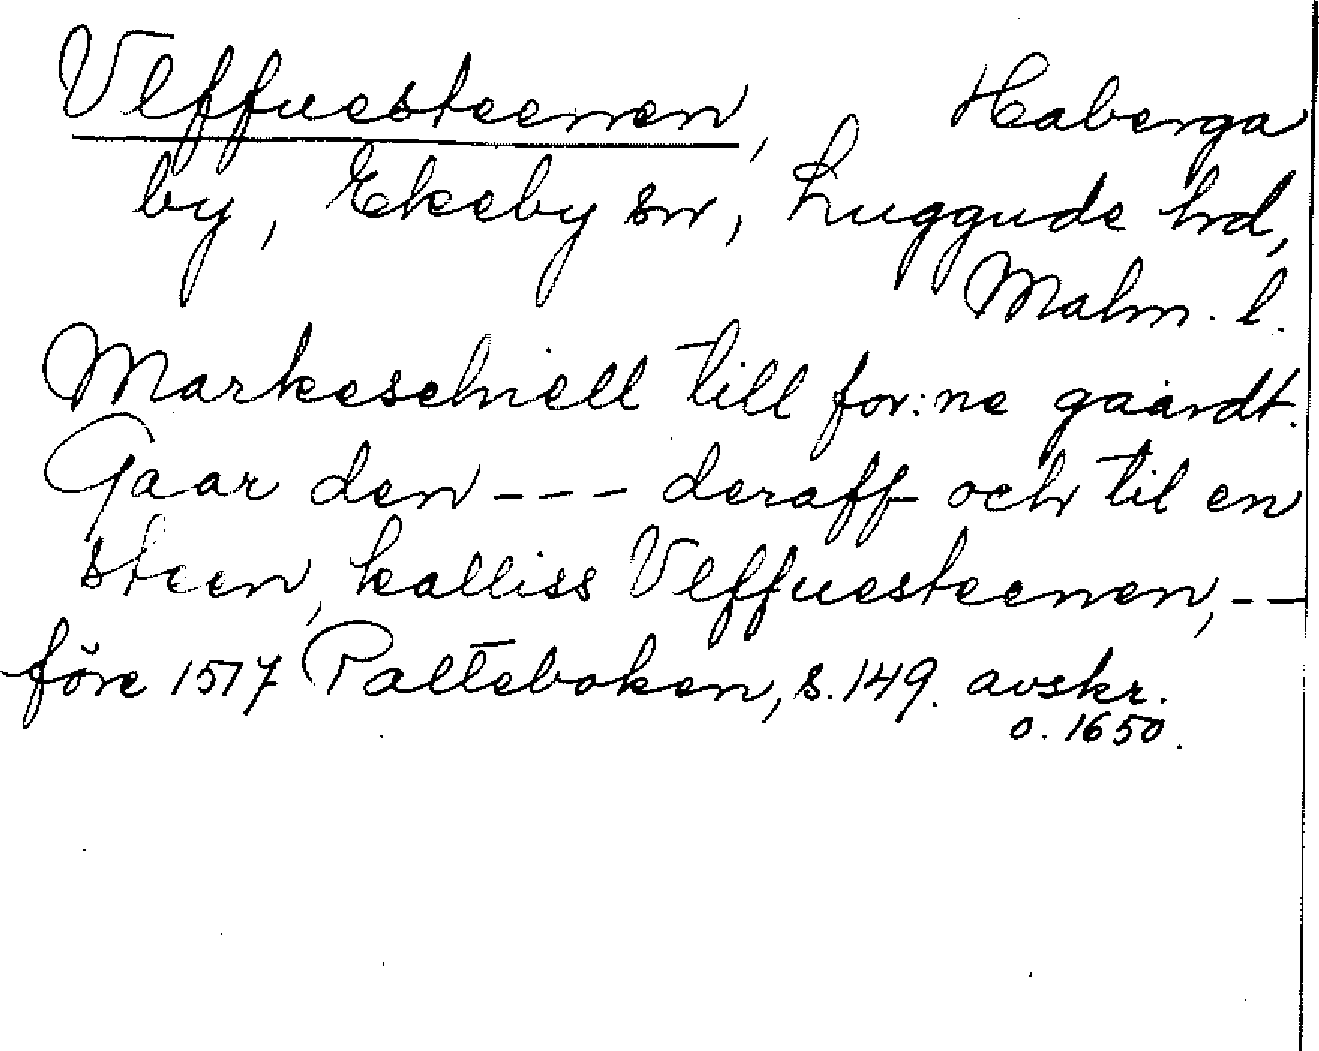 Vlffuesteenen, Haberga
by, Ekeby sn, Luggude hd,
Malm. l.
Markeschiell till for:ne gaardt.
Gaar den --- deraff och til en
steen, kalliss Vlffuesteenen, --
före 1517 Palteboken, s. 149. avskr.
o. 1650.